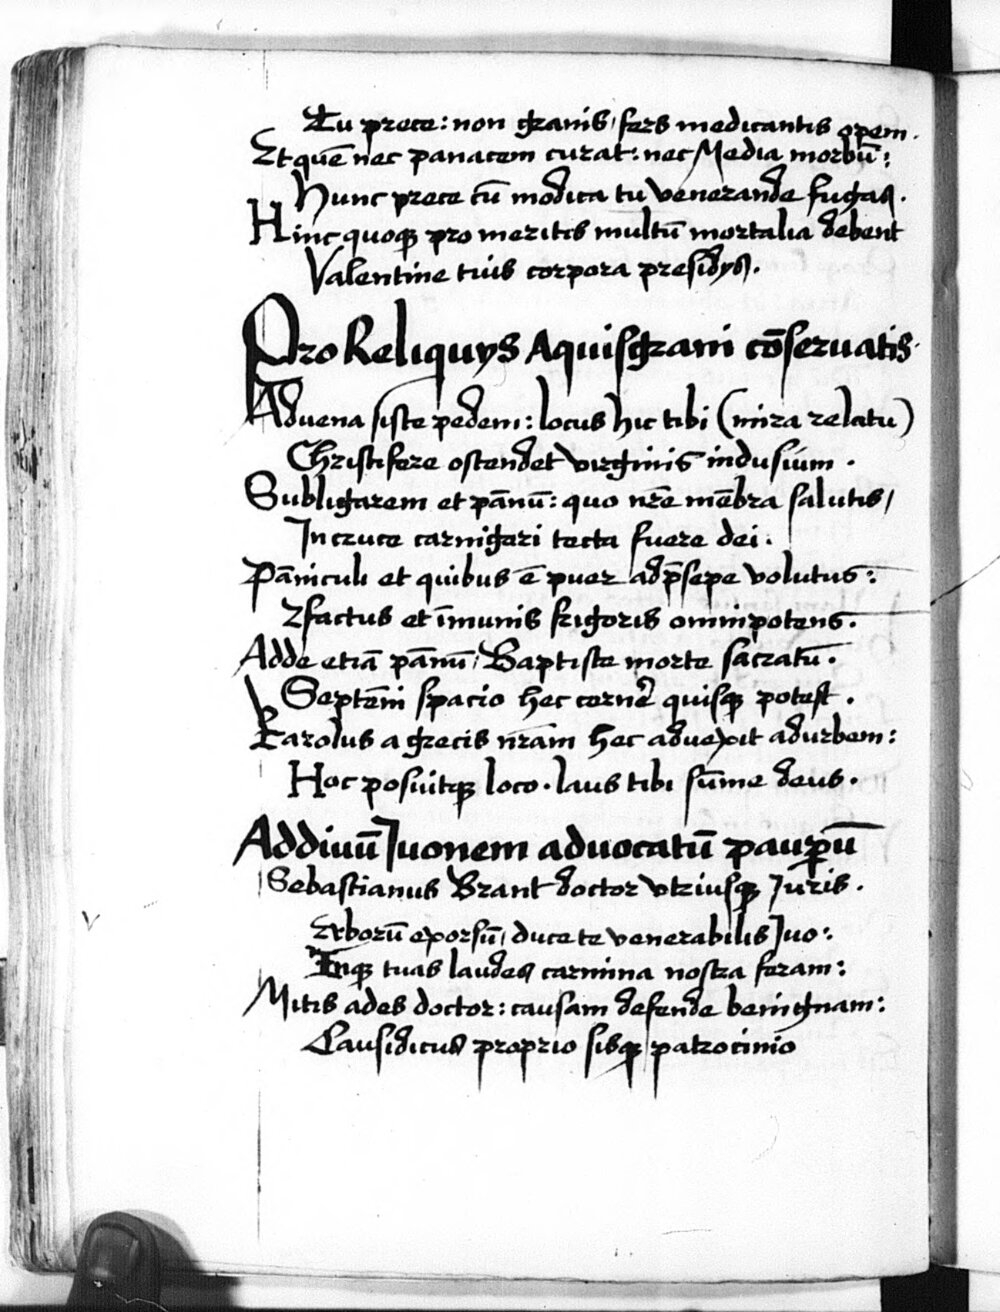 Tu prece: non granis/ fers medicantis opem.
Et quē nec panacem curat: nec Media morbū:
Hunc prece cū modica tu venerande fugas.
Hinc quoqꝫ pro meritis multū mortalia debent
Valentine tuis corpora presidys.
Pro Reliquys Aquisgrani cōseruatis.
Aduena siste pedem: locus hic tibi (mira relatu)
Christifere ostendet virginis indusium.
Subligarem et pānū: quo nr̄e mēbra salutis/
In cruce carnigeri tecta fuere dei.
Pāniculi et quibus ē puer ad p̄sepe volutus:
et immunis frigoris omnipotens.
Adde etiā pānū/ Baptiste morte sacratū.
Septēni spacio hec cernē quisqꝫ potest.
Karolus a grecis nr̄am hec aduexit ad urbem:
Hoc posuitqꝫ loco. laus tibi sūme deus.
Ad diuū Iuonem aduocatū pauꝑū
Sebastianus Brant doctor vtriusqꝫ Iuris.
exorsū/ duce te venerabilis Iuo:
Inqꝫ tuas laudes carmina nostra feram:
Mitis ades doctor: causam defende benignam:
Causidicus proprio sisqꝫ patrocinio